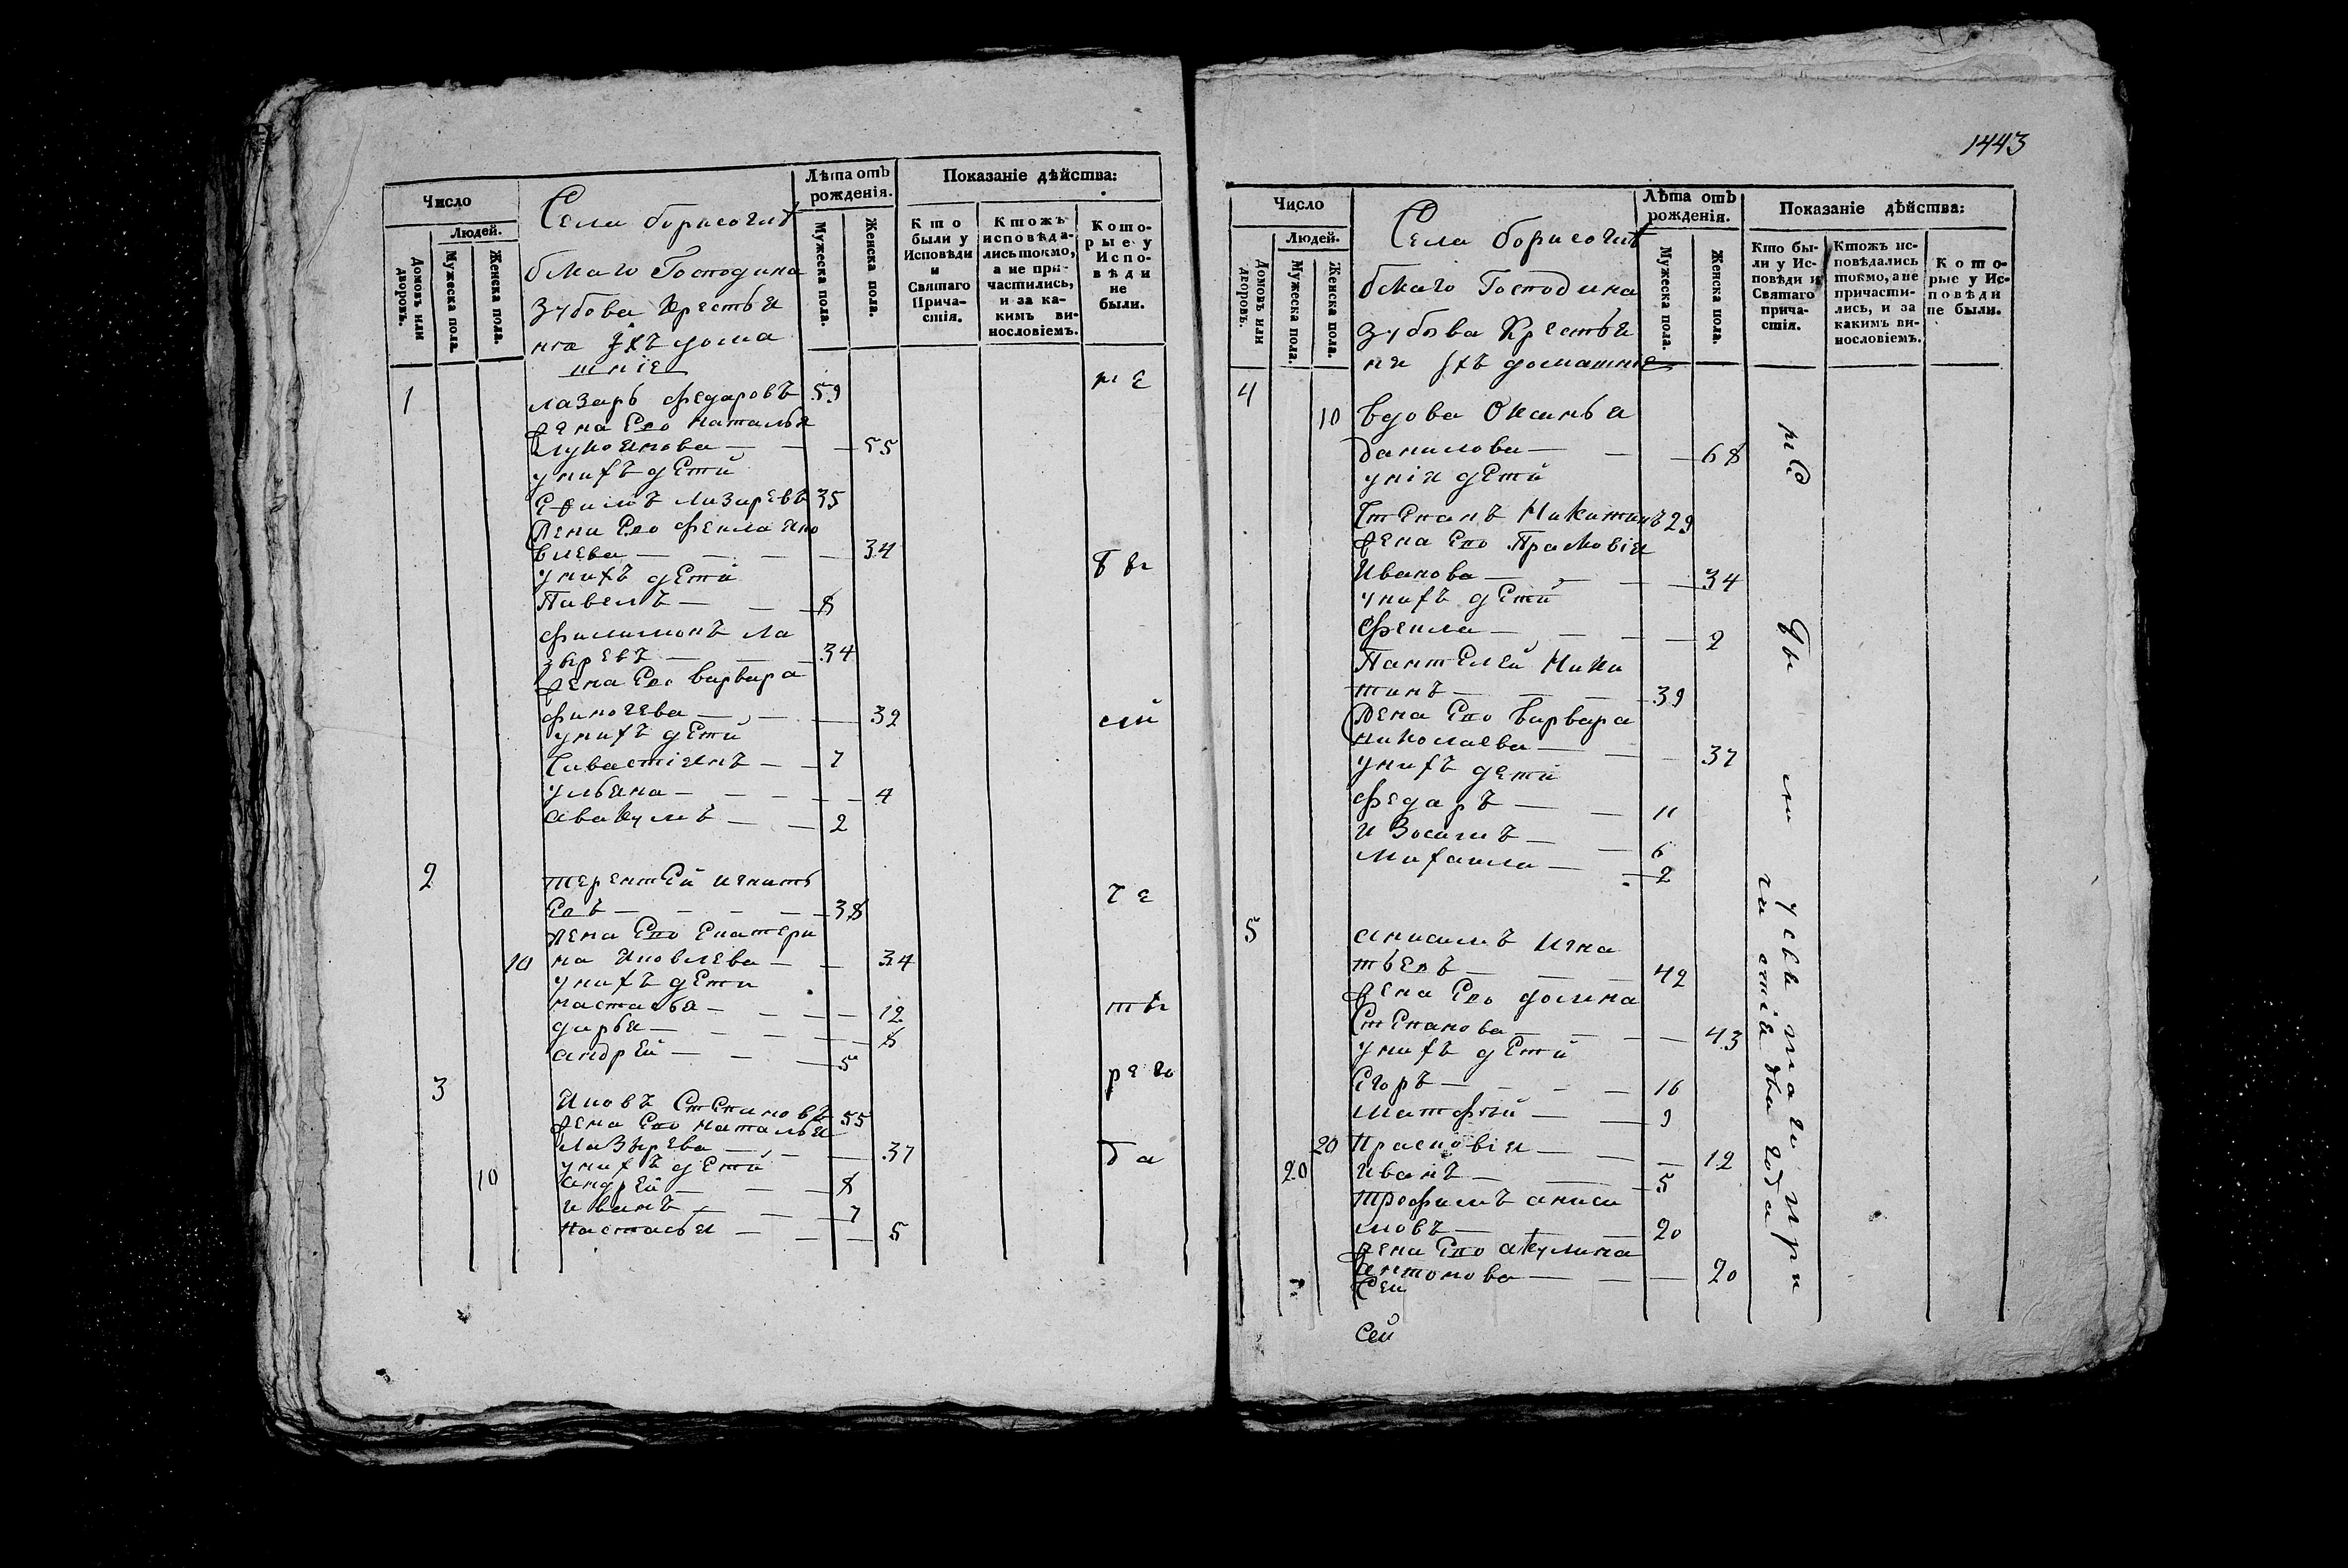 Число
Людей.
Домовъ или дворовъ.
Мужеска пола.
Женска пола.
Села борисоглѣ
бскаго Господина
Зубова Крестья
на ихъ дома
шніе
Лѣта отъ
рожденія.
Мужеска пола.
Женска пола.
Показаніе дѣйства:
Кто
были у
Исповѣди
и
Святаго
Прича-
стія.
Ктожъ
исповѣда-
лись токмо,
а не при-
частились,
и за ка-
кимъ ви-
нословіемъ.
Кото-
рые у
Испо-
вѣди
не
были.
1 лазарь федаровъ 59
жена Ево наталья
лукоянова — — — 55
унихъ дети
Ефимъ лазаревъ 35
жена Ево фекла яко
влева — — — — 34
унихъ дети
Павелъ — — — 8
филимонъ ла
зыревъ — — — 34
жена Ево варвара
— — — 32
унихъ дети
Савастіянъ — — 7
ульяна — — — — 4
авакумъ — — — 2
2 терентей игнать
Евъ — — — — 38
жена Ево Екатери
10 на яковлева — — 34
унихъ дети
настасья — — — — 12
дарья — — — — — 8
андрей — — — 5
3 яковъ Степановъ 55
жена Ево наталья
лазырева — — — 37
унихъ дети
10 андрей — — — 8
иванъ — — — 7
настасья — — — 5
не
бы
сей
че
ты
рего
да
1443
Число
Людей.
Домовъ или дворовъ.
Мужеска пола.
Женска пола.
Села борисоглѣ
бскаго Господина
зубова Крестья
ня ихъ домашніе
Лѣта отъ
рожденія.
Мужеска пола.
Женска пола.
Показаніе дѣйства:
Кто бы-
ли у Ис-
повѣди и
Святаго
прича-
стія.
Ктожъ ис-
повѣдались
токмо, а не
причасти-
лись, и за
какимъ ви-
нословіемъ.
Кото-
рые у Ис-
повѣди
не были.
4
10 вдова Оксинья
данилова — — — 68
унія дети
Степанъ Никитинъ 29
жена Ево Прасковія
Иванова — — — 34
унихъ дети
Фекла — — — — 2
Пантелей Ники
тинъ — — — 39
жена Ево варвара
николаева — — — 37
унихъ дети
федаръ — — 11
Изосимъ — — 6
михаила — — 2
5 анисимъ Игна
тьевъ — — — 42
жена Ево домна
Степанова — — — 43
унихъ дети
Егоръ — — — — 16
матфей — — 9
20 Прасковія — — — 12
20 Иванъ — — — 5
трофимъ аниси
мовъ — — — 20
жена Ево акулина
антонова — — — 20
Сей
Сей
не
бы
ли